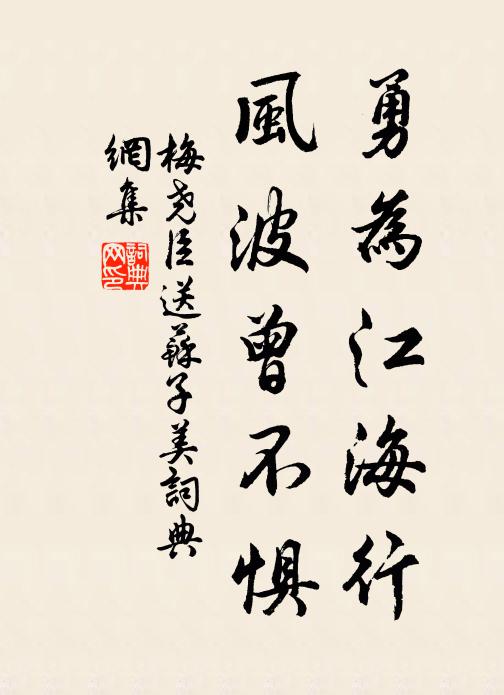 勇為江海行
風波曾不惧
梅堯臣送蘇子美詞典
網集
詞典
网印